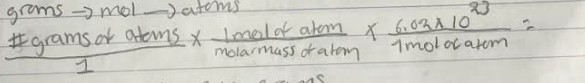 grams → mol → atoms
#grams of atoms/1 × 1 mol of atom/molar mass of atom × 6.02 × 10^23/1 mol of atom =